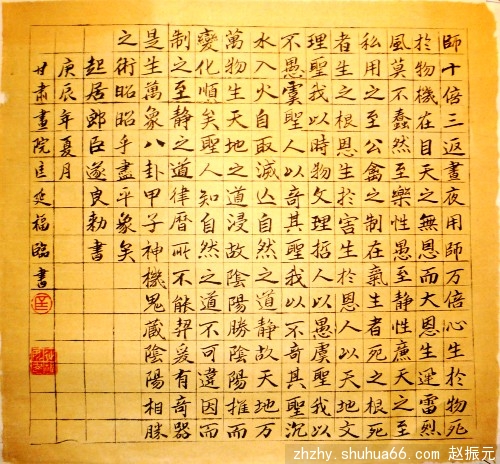 師十倍三返晝夜用師万倍心生於物死
於物機在目天之無恩而大恩生迅雷烈
風莫不蠢然至樂性愚至静性廉天之至
私用之至公禽之制在氣生者死之根死
者生之根恩生於害生於恩人以天地文
理聖我以時物文理哲人以愚虞聖我以
不愚虞聖人以奇其聖我以不奇其聖沉
水入火自取滅亡自然之道静故天地万
萬物生天地之道浸故陰陽勝陰陽推而
變化順矣聖人知自然之道不可違因而
制之至静之道律曆所不能契爰有奇器
是生萬象八卦甲子神機鬼蔵陰陽相勝
之術昭昭乎盡乎象矣
起居郎臣遂良勅書
庚辰年夏月
甘肅畫院匡延福臨書
zhzhy.shuhua66.com 赵振元